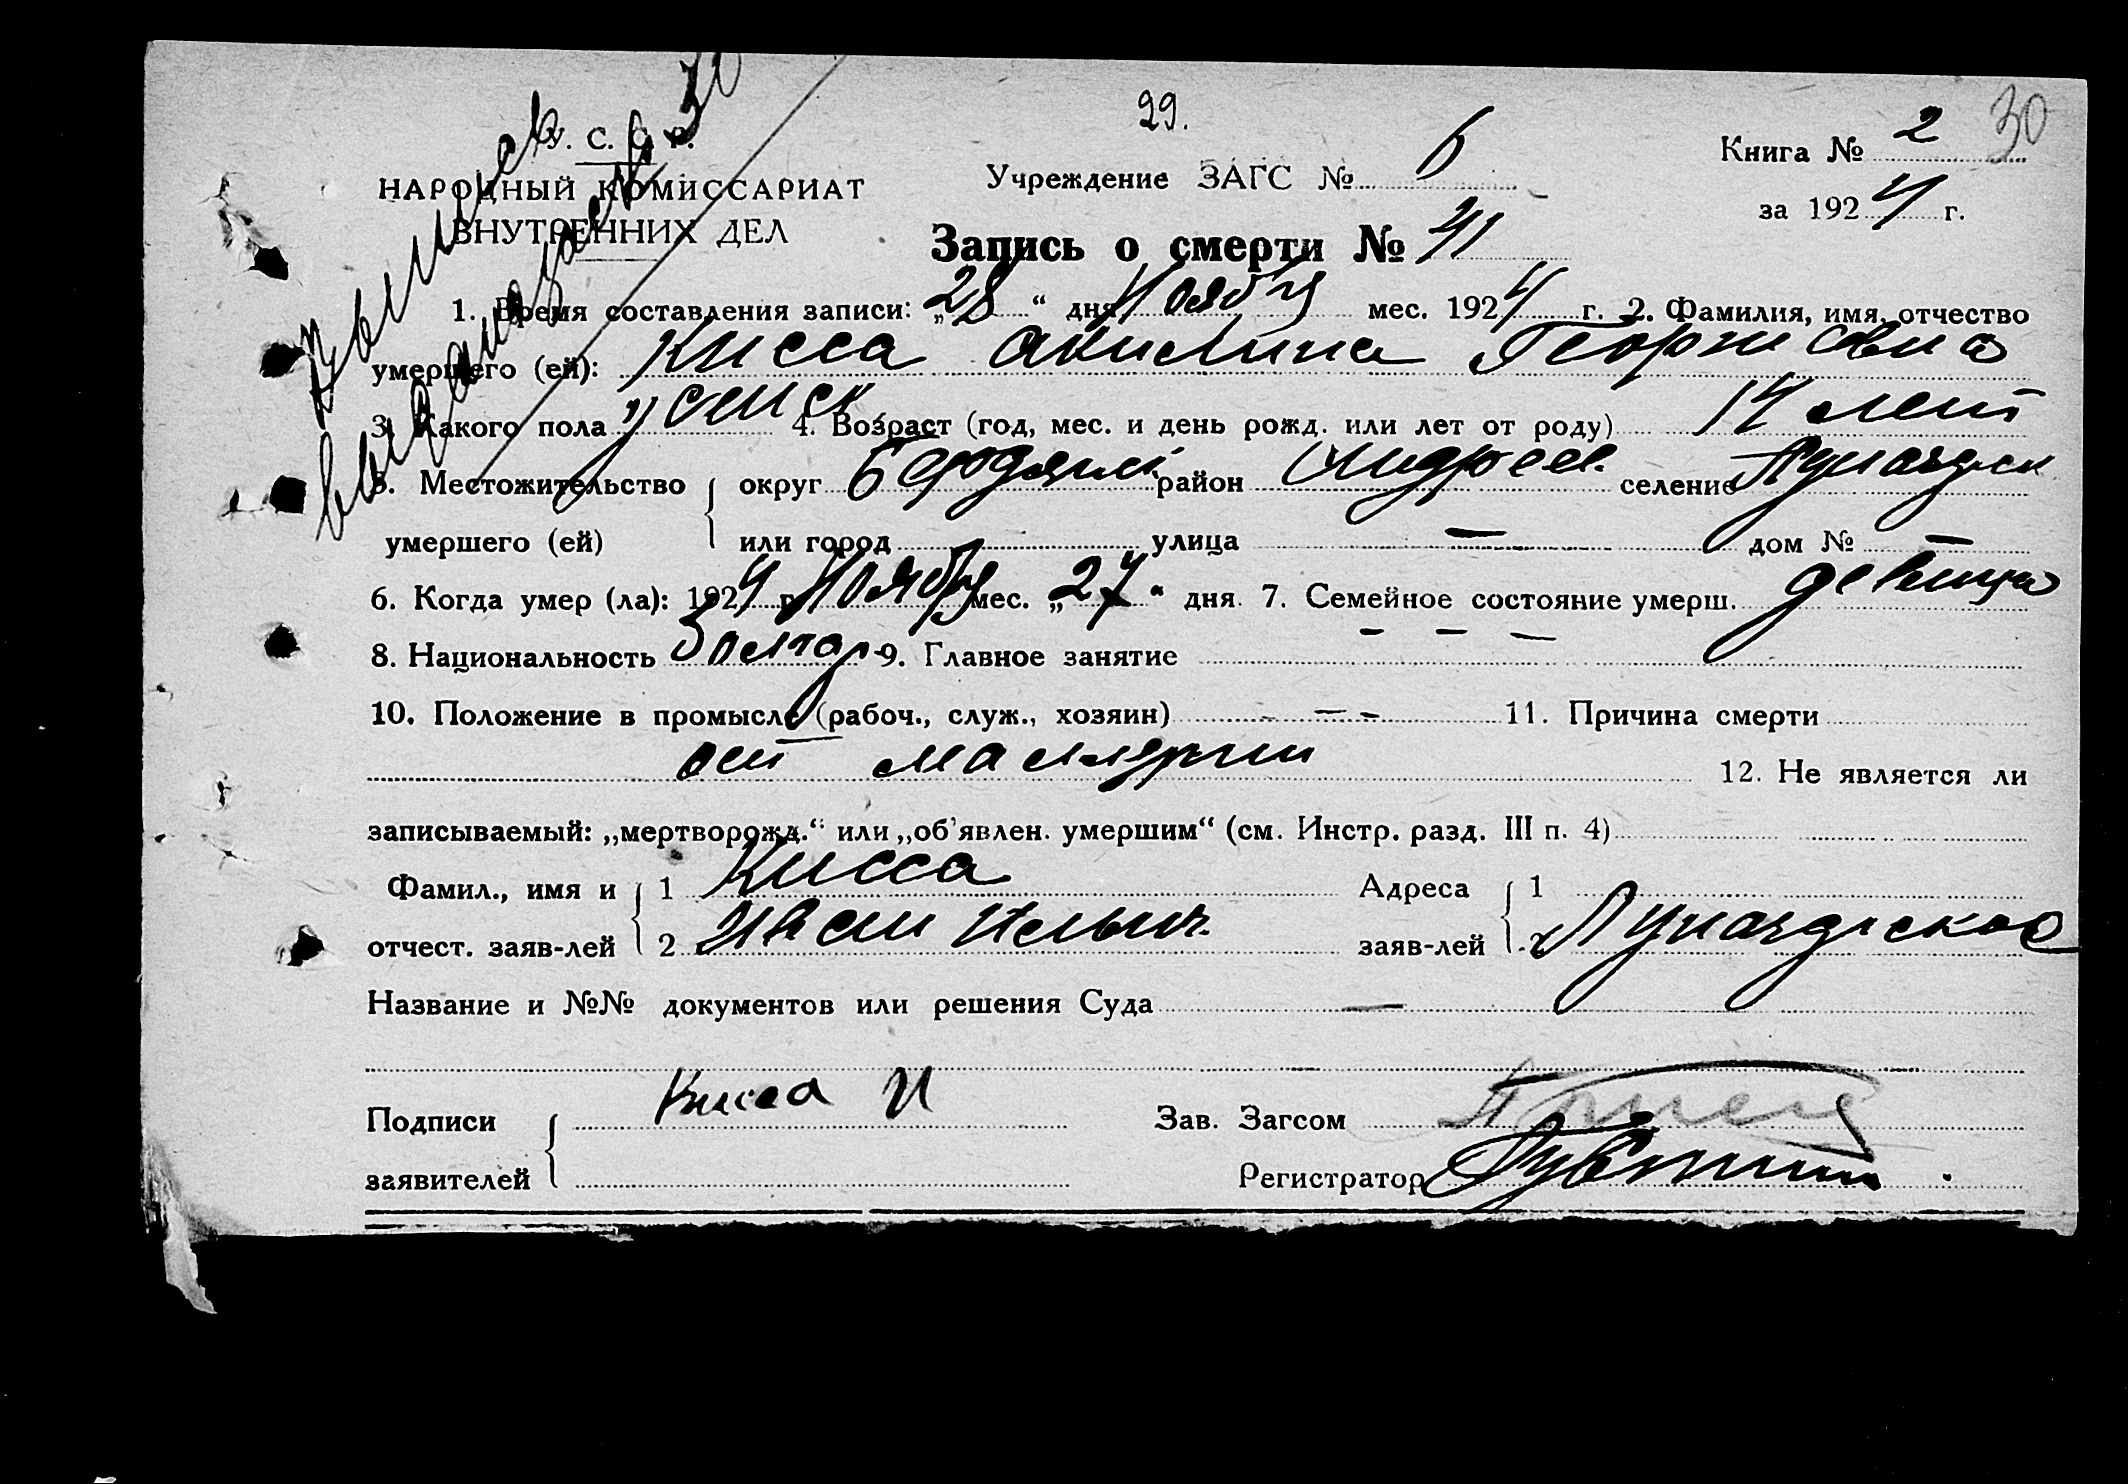 29.
30
У. С. С. Р.
НАРОДНЫЙ КОМИССАРИАТ
ВНУТРЕННИХ ДЕЛ
Учреждение ЗАГС № 6
Книга № 2
за 1924 г.
Запись о смерти № 41
1. Время составления записи: „28“ дня Ноября мес. 1924 г. 2. Фамилия, имя, отчество
умершего (ей): Кисса Акилина Георгиевна
3. Какого пола женск 4. Возраст (год, мес. и день рожд. или лет от роду) 14 лет
5. Местожительство округ Бердянск район Андреев. селение
умершего (ей) или город улица — дом № —
6. Когда умер (ла): 1924 г. Ноября мес. „27“ дня. 7. Семейное состояние умерш. девица
8. Национальность Болгар 9. Главное занятие — — —
10. Положение в промысле (рабоч., служ., хозяин) — — — 11. Причина смерти
от малярии 12. Не является ли
записываемый: „мертворожд.“ или „об'явлен. умершим“ (см. Инстр. разд. III п. 4)
Фамил., имя и 1 Кисса Адреса 1
отчест. заяв-лей 2 Иван Ильич заяв-лей 2
Название и №№ документов или решения Суда —
Подписи Кисса И Зав. Загсом
заявителей Регистратор